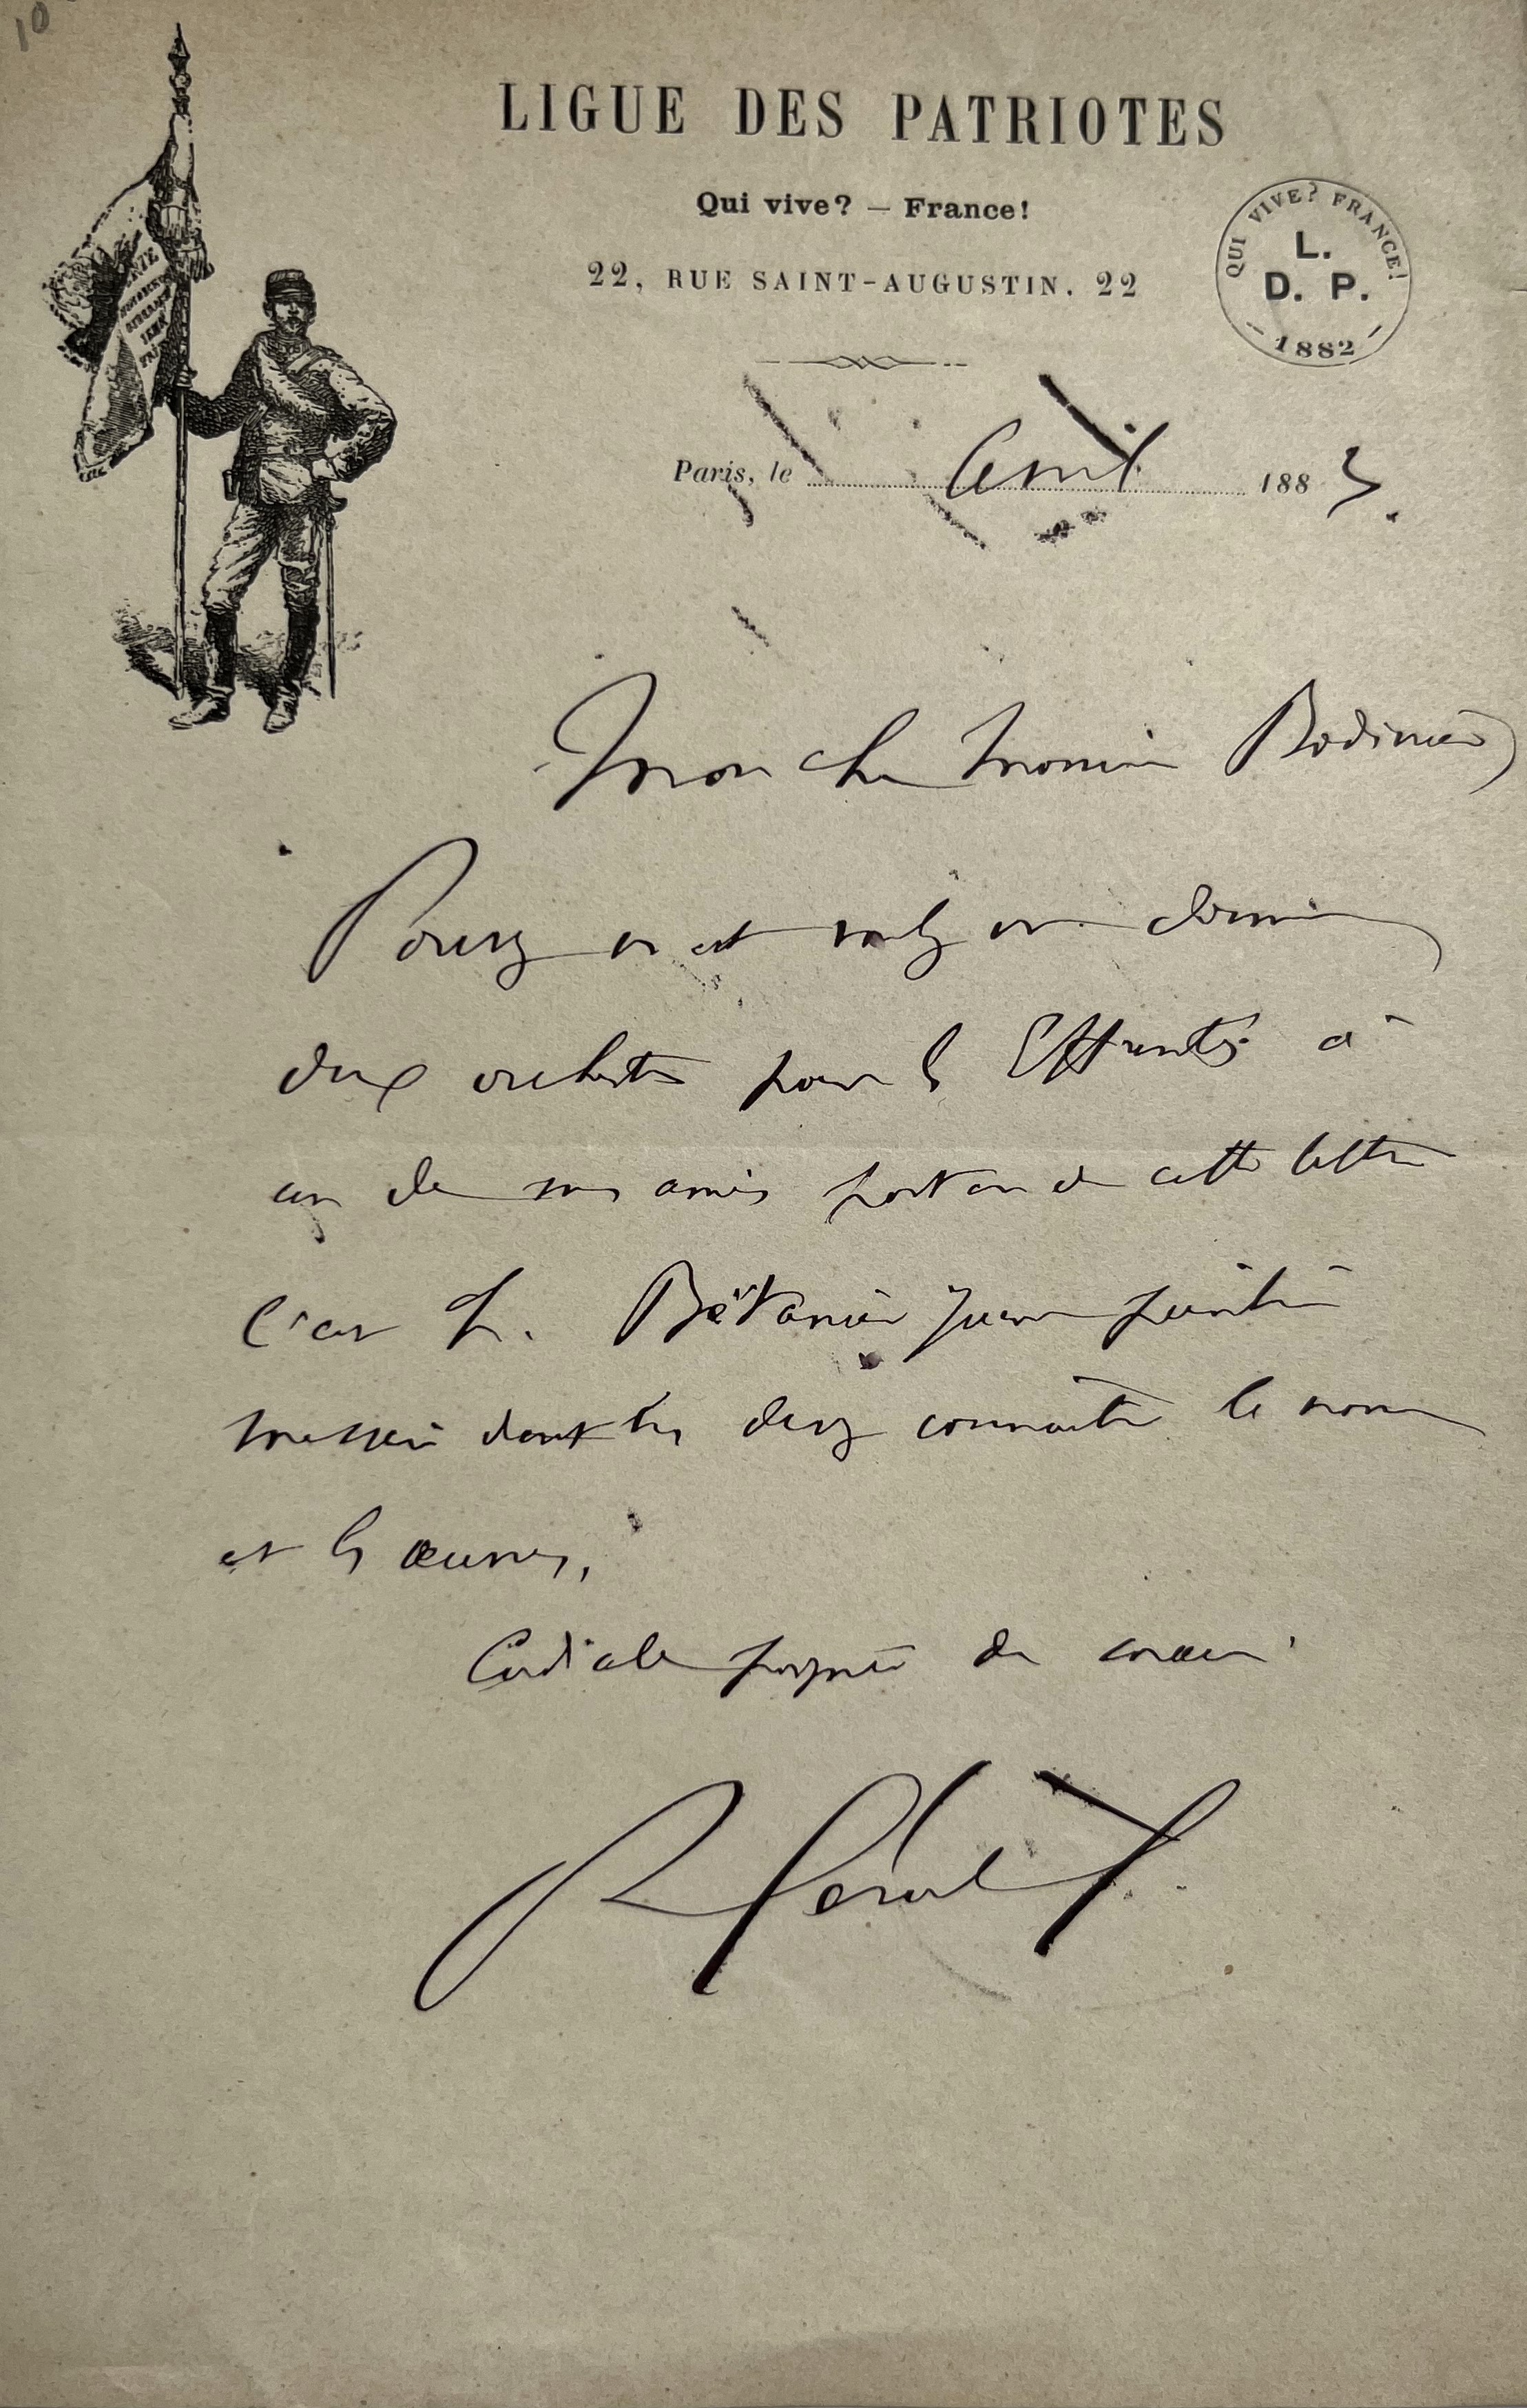 10
LIGUE DES PATRIOTES
Qui vive? — France!
22, RUE SAINT-AUGUSTIN. 22
QUI VIVE? FRANCE!
L.
D. P.
1882
Paris, le avril 1883.
Mon cher Monsieur Bodinier
Pouvez vs et voulez vs donner
deux orchestres pour les Effrontés à
un de mes amis porteur de cette lettre
C'est M. Bettanier jeune peintre
messin dont vs devez connaître le nom
et les œuvres,
Cordiale poignée de main